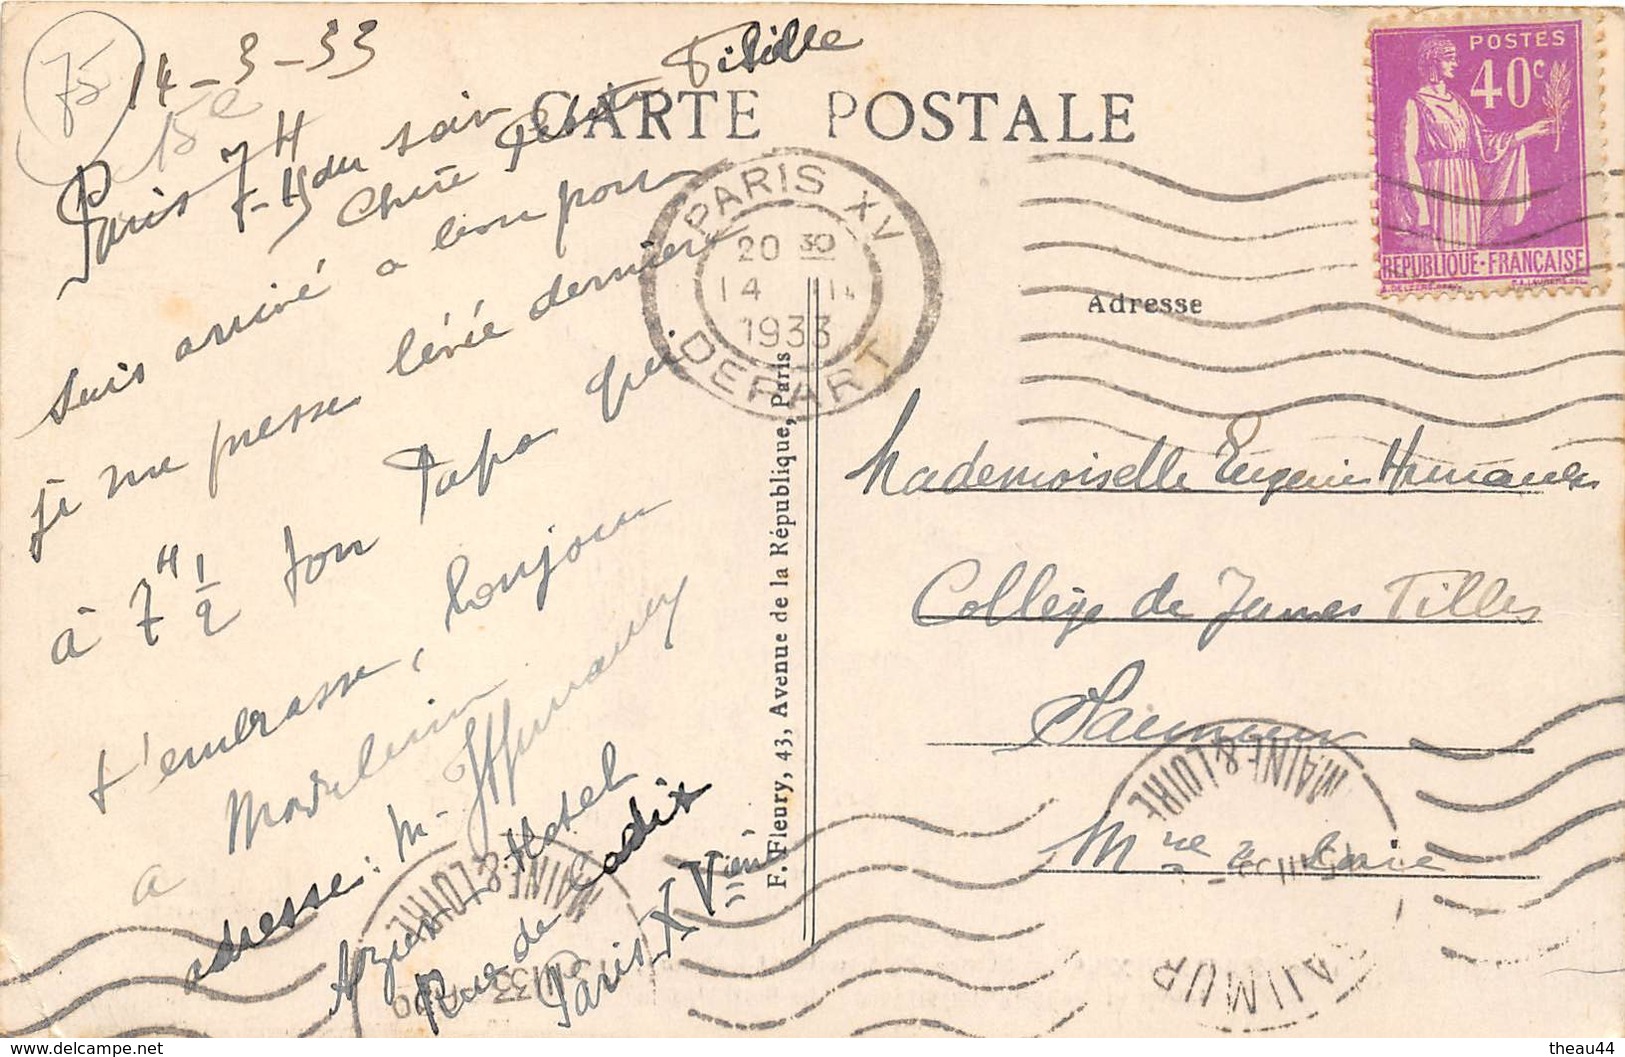 75
15e
14-3-33
Paris 7H
7-H du soir
Chère Petite Fifille
suis arrivé a bon port
je me presse levée dernière
à 7H 1/2 ton Papa qui
t'embrasse, bonjour
a Madeleine
adresse: M.
Hotel
Rue de Cadix
Paris XVième
CARTE POSTALE
PARIS XV
20 30
14 III
1933
DEPART
POSTES
40c
REPUBLIQUE-FRANÇAISE
Adresse
Mademoiselle Eugenie
Collège de Jeunes Filles
Saumur
Mne & Loire
F. Fleury, 43, Avenue de la République, Paris
MAINE & LOIRE
SAUMUR
MAINE & LOIRE
www.delcampe.net
theau44